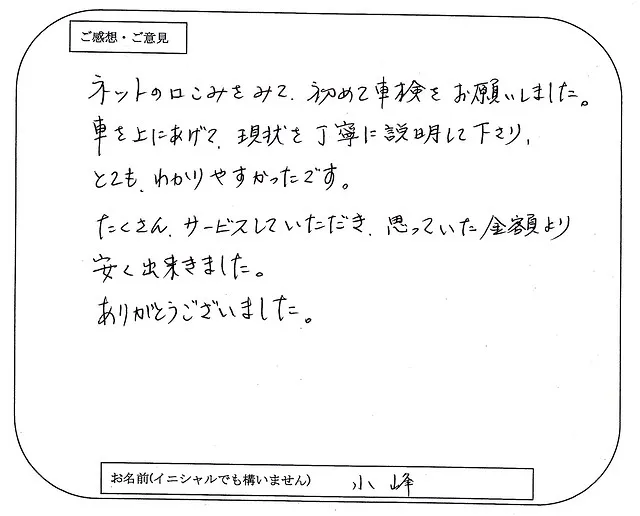 ご感想・ご意見
ネットの口こみをみて、初めて車検をお願いしました。
車を上にあげて、現状を丁寧に説明して下さり、
とても、わかりやすかったです。
たくさん、サービスしていただき、思っていた金額より
安く出来きました。
ありがとうございました。
お名前(イニシャルでも構いません) 小峰